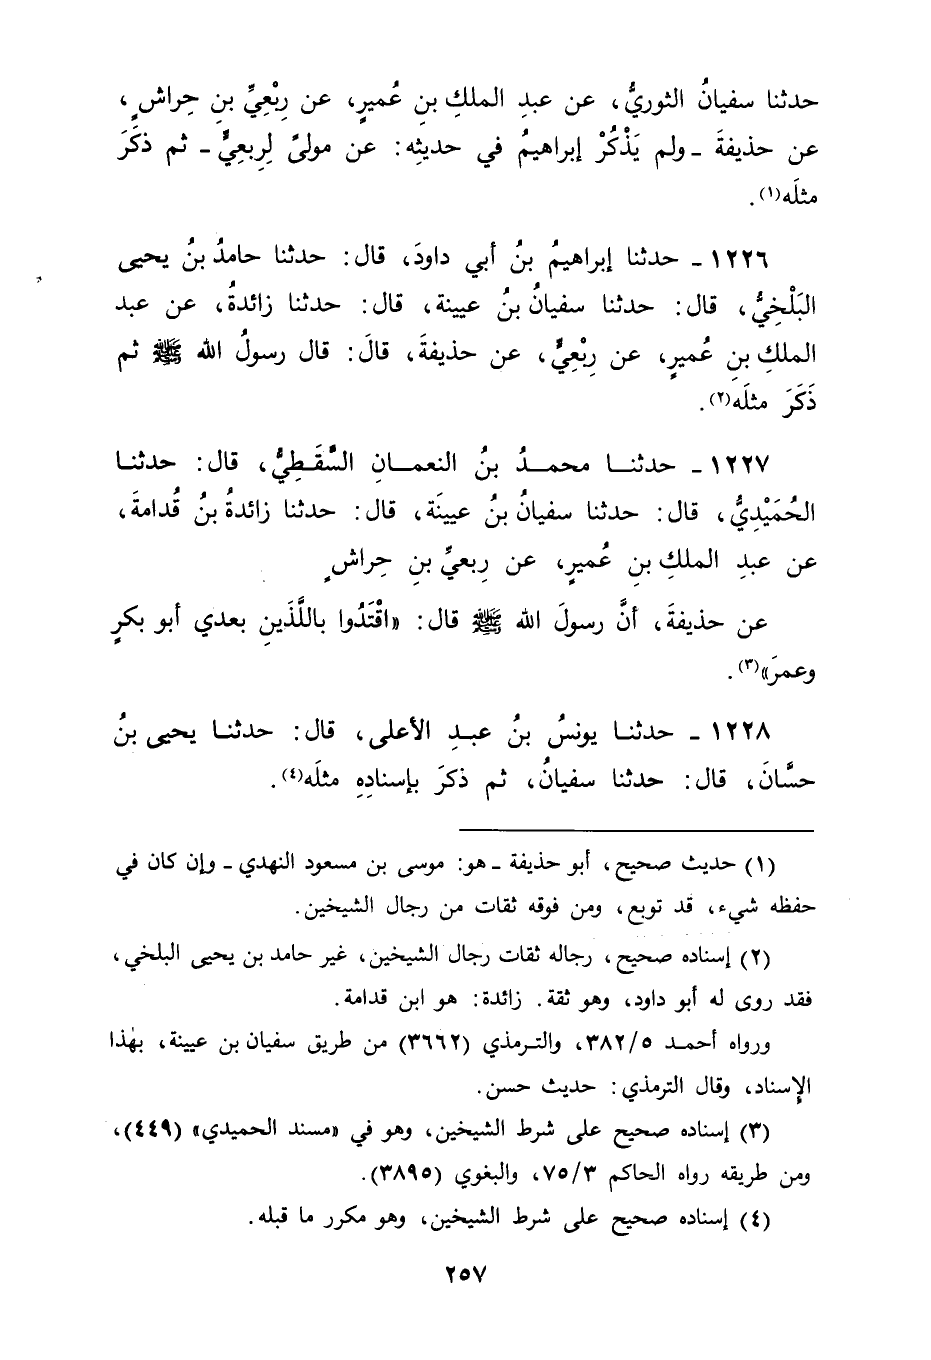 حدثنا سفيانُ الثوريُّ، عن عبدِ الملكِ بنِ عُميرٍ، عن رِبْعِيِّ بنِ حِراشٍ،
عن حذيفةَ - ولم يَذْكُرْ إبراهيمُ في حديثِه: عن مولىً لِربعِيٍّ - ثم ذكَرَ
مثلَه(١).
١٢٢٦ - حدثنا إبراهيمُ بنُ أبي داودَ، قال: حدثنا حامدُ بنُ يحيى
البَلْخِيُّ، قال: حدثنا سفيانُ بنُ عيينة، قال: حدثنا زائدةُ، عن عبد
الملكِ بنِ عُميرٍ، عن رِبْعِيٍّ، عن حذيفةَ، قالَ: قال رسولُ الله ﷺ ثم
ذَكَرَ مثلَه(٢).
١٢٢٧ - حدثنا محمدُ بنُ النعمانِ السَّقَطِيُّ، قال: حدثنا
الحُمَيْدِيُّ، قال: حدثنا سفيانُ بنُ عيينَة، قال: حدثنا زائدةُ بنُ قُدامةَ،
عن عبدِ الملكِ بنِ عُميرٍ، عن رِبعيِّ بنِ حِراشٍ
عن حذيفةَ، أنَّ رسولَ الله ﷺ قال: «اقْتَدُوا باللَّذَينِ بعدي أبو بكرٍ
وعمرَ»(٣).
١٢٢٨ - حدثنا يونسُ بنُ عبدِ الأعلى، قال: حدثنا يحيى بنُ
حسَّانَ، قال: حدثنا سفيانُ، ثم ذكرَ بإسنادِهِ مثلَه(٤).
(١) حديث صحيح، أبو حذيفة - هو: موسى بن مسعود النهدي - وإن كان في
حفظه شيء، قد توبع، ومن فوقه ثقات من رجال الشيخين.
(٢) إسناده صحيح، رجاله ثقات رجال الشيخين، غير حامد بن يحيى البلخي،
فقد روى له أبو داود، وهو ثقة. زائدة: هو ابن قدامة.
ورواه أحمد ٣٨٢/٥، والترمذي (٣٦٦٢) من طريق سفيان بن عيينة، بهٰذا
الإِسناد، وقال الترمذي: حديث حسن.
(٣) إسناده صحيح على شرط الشيخين، وهو في «مسند الحميدي» (٤٤٩)،
ومن طريقه رواه الحاكم ٧٥/٣، والبغوي (٣٨٩٥).
(٤) إسناده صحيح على شرط الشيخين، وهو مكرر ما قبله.
٢٥٧